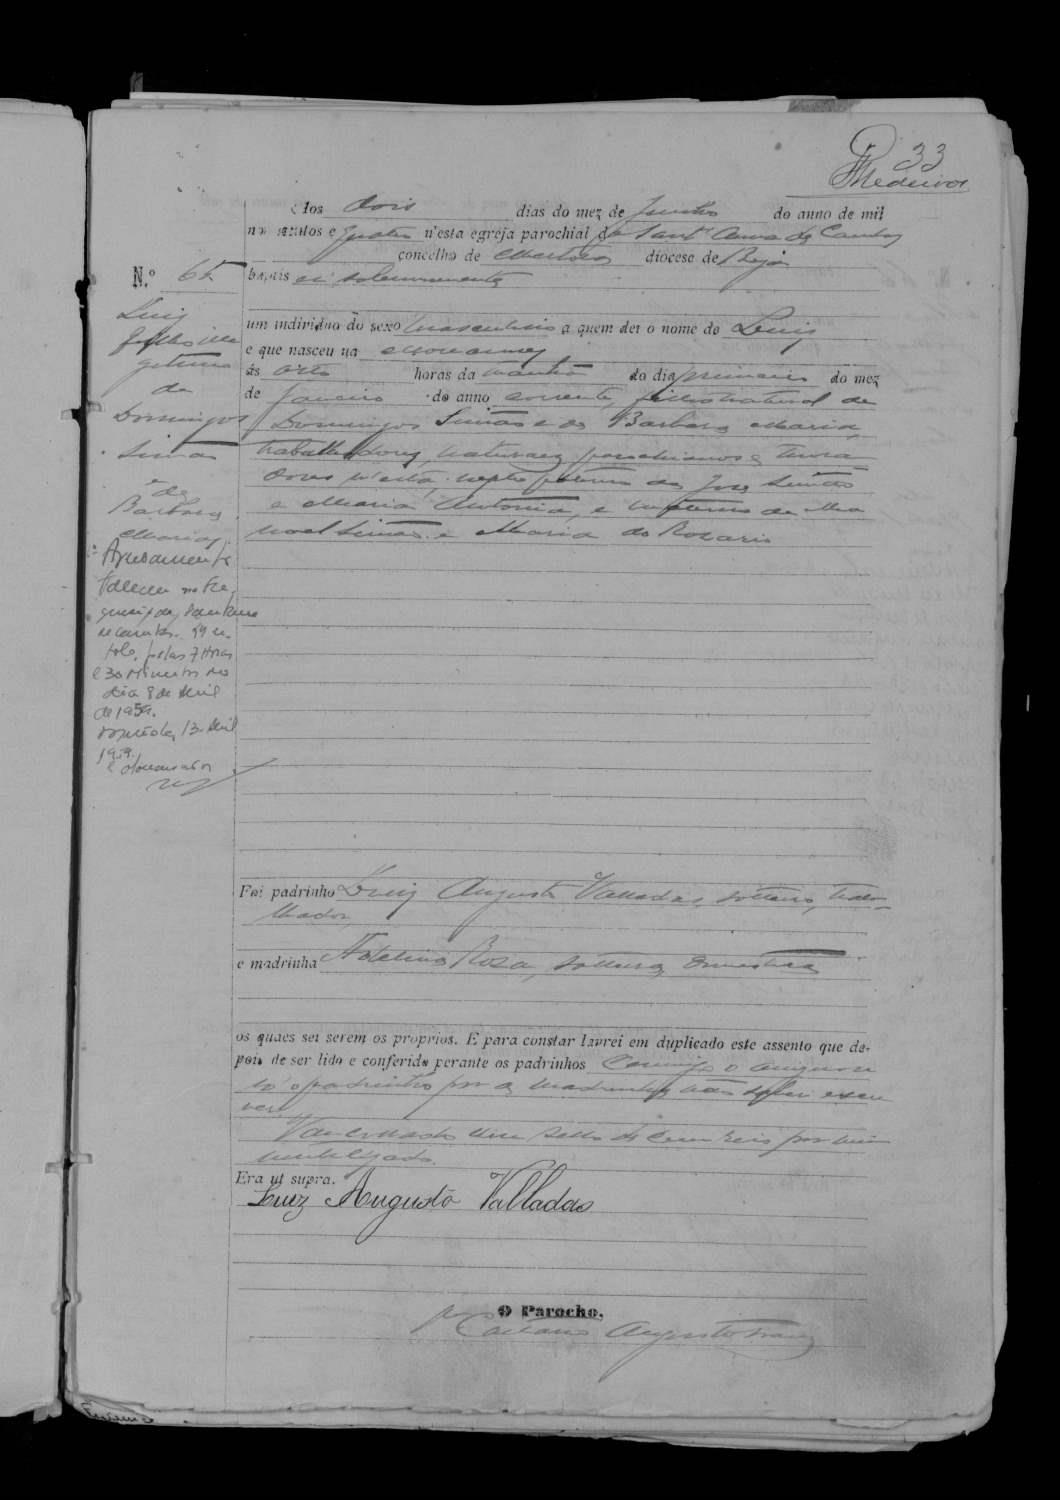 33
Medeiros
Aos dois dias do mez de Junho do anno de mil
novecentos e quatro n'esta egreja parochial de Sant'Anna de Cambas
concelho de Mertola diocese de Beja
N.º 65
baptisei solemnemente
um individuo do sexo masculino a quem dei o nome de Luiz
e que nasceu na
ás oito horas da manhã do dia primeiro do mez
de Janeiro do anno corrente, filho natural de
Domingos Simão e de Barbara Maria,
trabalhadores, naturaes, parochianos e mora-
dores n'esta, neto paterno de José Simão
e Maria Antonia, e materno de Ma-
noel Simão e Maria do Rosario
Luiz
filho ille-
gitimo
de
Domingos
Simão
e de
Barbara
Maria
Averbamento
Faleceu na fre-
guezia de Santana
de Cambas.
pelas 7 horas
e 30 minutos do
dia 8 de Abril
de 1959.
Mértola, 13 Abril
1959.
O Conservador
Foi padrinho Luiz Augusto Valladas, solteiro, traba-
lhador,
e madrinha Adelina Rosa, solteira, domestica
os quaes sei serem os proprios. E para constar lavrei em duplicado este assento que de-
pois de ser lido e conferido perante os padrinhos comigo o assignou
só o padrinho por a madrinha não saber escre-
ver.
Vae collado um sello de cem reis por mim
inutilizado.
Era ut supra.
Luiz Augusto Valladas
O Parocho,
Caetano Augusto